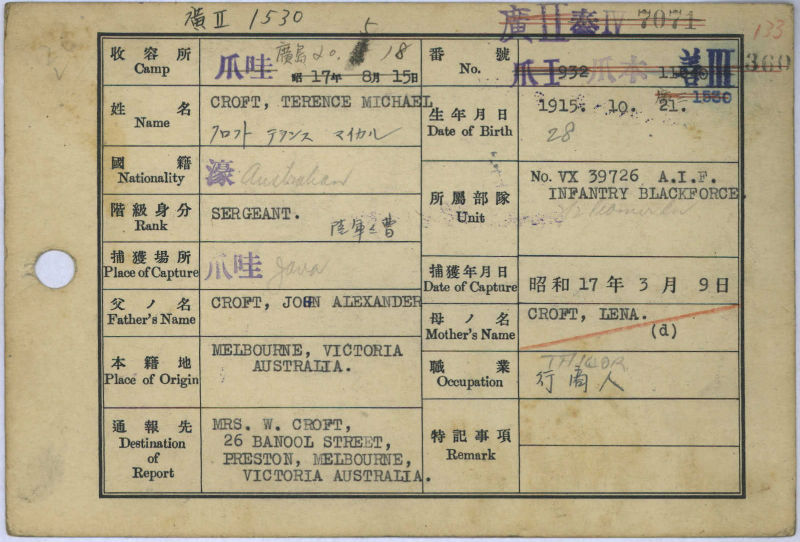 廣II 1530
廣II 泰IV 7071
133
收容所
Camp
爪哇 廣島 20. 5 18
昭 17年 8月 15日
番號
No.
爪I 1932 爪本 善III 360
1530
姓名
Name
CROFT, TERENCE MICHAEL
クロフト テランス マイカル
生年月日
Date of Birth
1915. 10. 21.
28
國籍
Nationality
濠 Australian
所屬部隊
Unit
No. VX 39726 A.I.F.
INFANTRY BLACKFORCE.
階級身分
Rank
SERGEANT.
陸軍 曹
捕獲場所
Place of Capture
爪哇 Java
捕獲年月日
Date of Capture
昭和 17 年 3 月 9 日
父ノ名
Father's Name
CROFT, JOHN ALEXANDER
母ノ名
Mother's Name
CROFT, LENA.
(d)
本籍地
Place of Origin
MELBOURNE, VICTORIA
AUSTRALIA.
職業
Occupation
行商人
通報先
Destination
of
Report
MRS. W. CROFT,
26 BANOOL STREET,
PRESTON, MELBOURNE,
VICTORIA AUSTRALIA.
特記事項
Remark